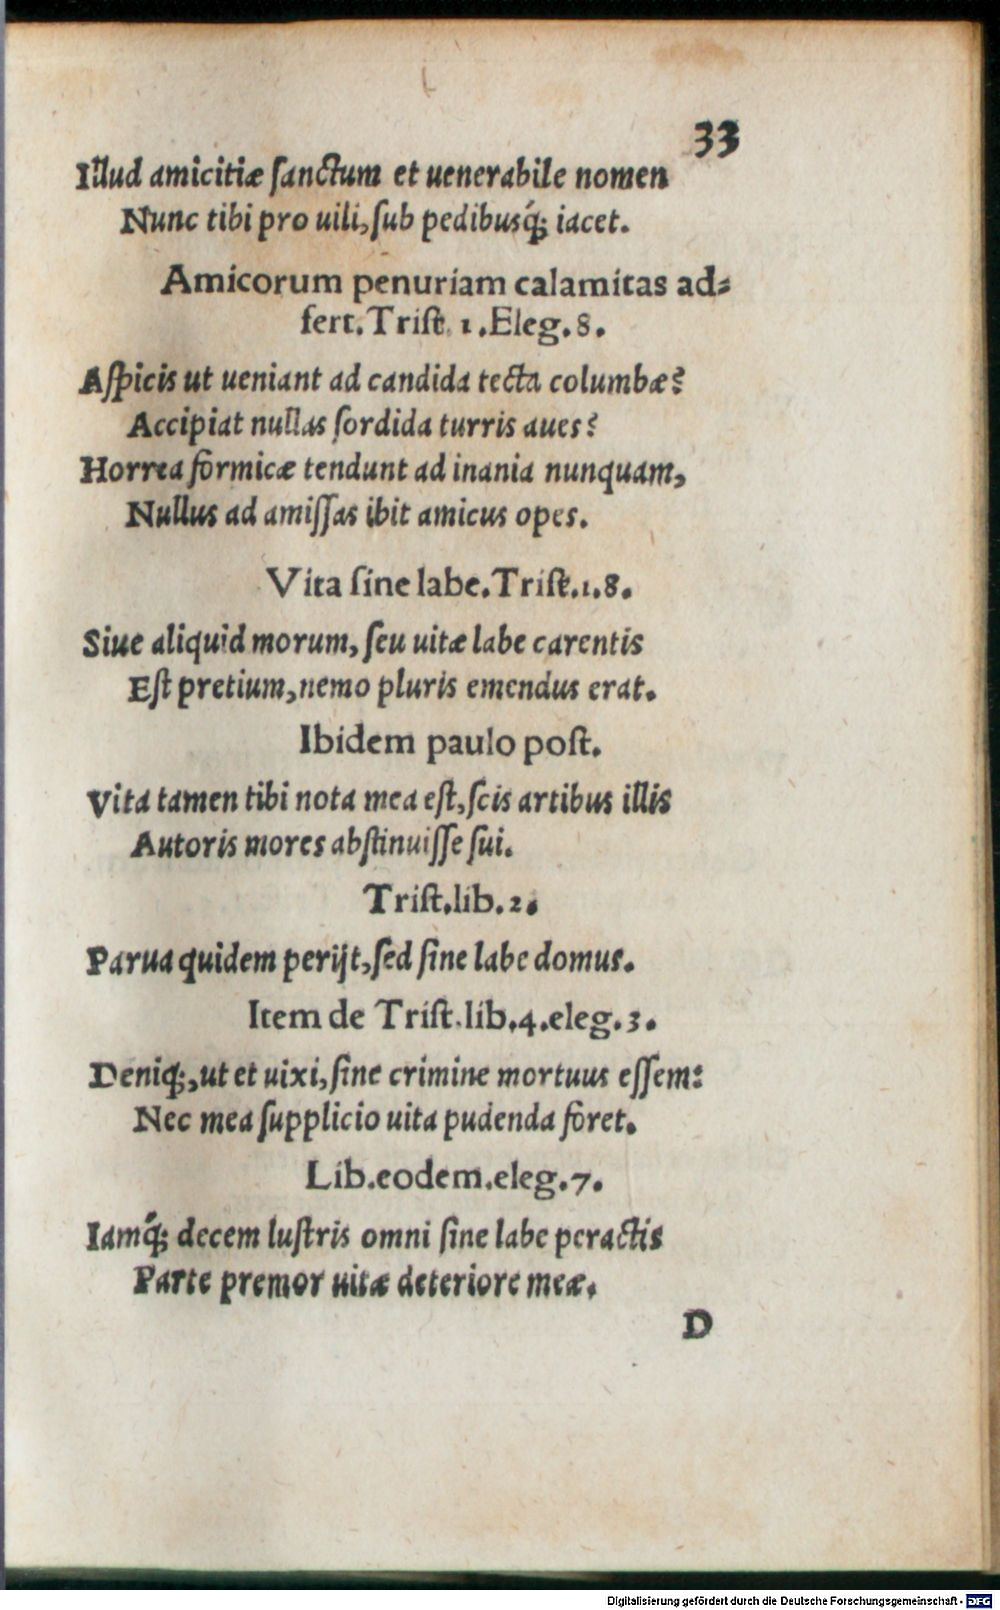 33
Illud amicitiæ ſanctum et uenerabile nomen
Nunc tibi pro uili, ſub pedibusq́; iacet.
Amicorum penuriam calamitas ad⸗
fert. Triſt. 1. Eleg. 8.
Aſpicis ut ueniant ad candida tecta columbæ?
Accipiat nullas ſordida turris aues?
Horrea formicæ tendunt ad inania nunquam,
Nullus ad amiſſas ibit amicus opes.
Vita ſine labe. Triſt. 1. 8.
Siue aliquid morum, ſeu uitæ labe carentis
Eſt pretium, nemo pluris emendus erat.
Ibidem paulo poſt.
Vita tamen tibi nota mea eſt, ſcis artibus illis
Autoris mores abſtinuiſſe ſui.
Triſt. lib. 2.
Parua quidem perijt, ſed ſine labe domus.
Item de Triſt. lib. 4. eleg. 3.
Deniq;, ut et uixi, ſine crimine mortuus eſſem:
Nec mea ſupplicio uita pudenda foret.
Lib. eodem. eleg. 7.
Iamq́; decem luſtris omni ſine labe peractis
Parte premor uitæ deteriore meæ.
D
Digitalisierung gefördert durch die Deutsche Forschungsgemeinschaft - DFG